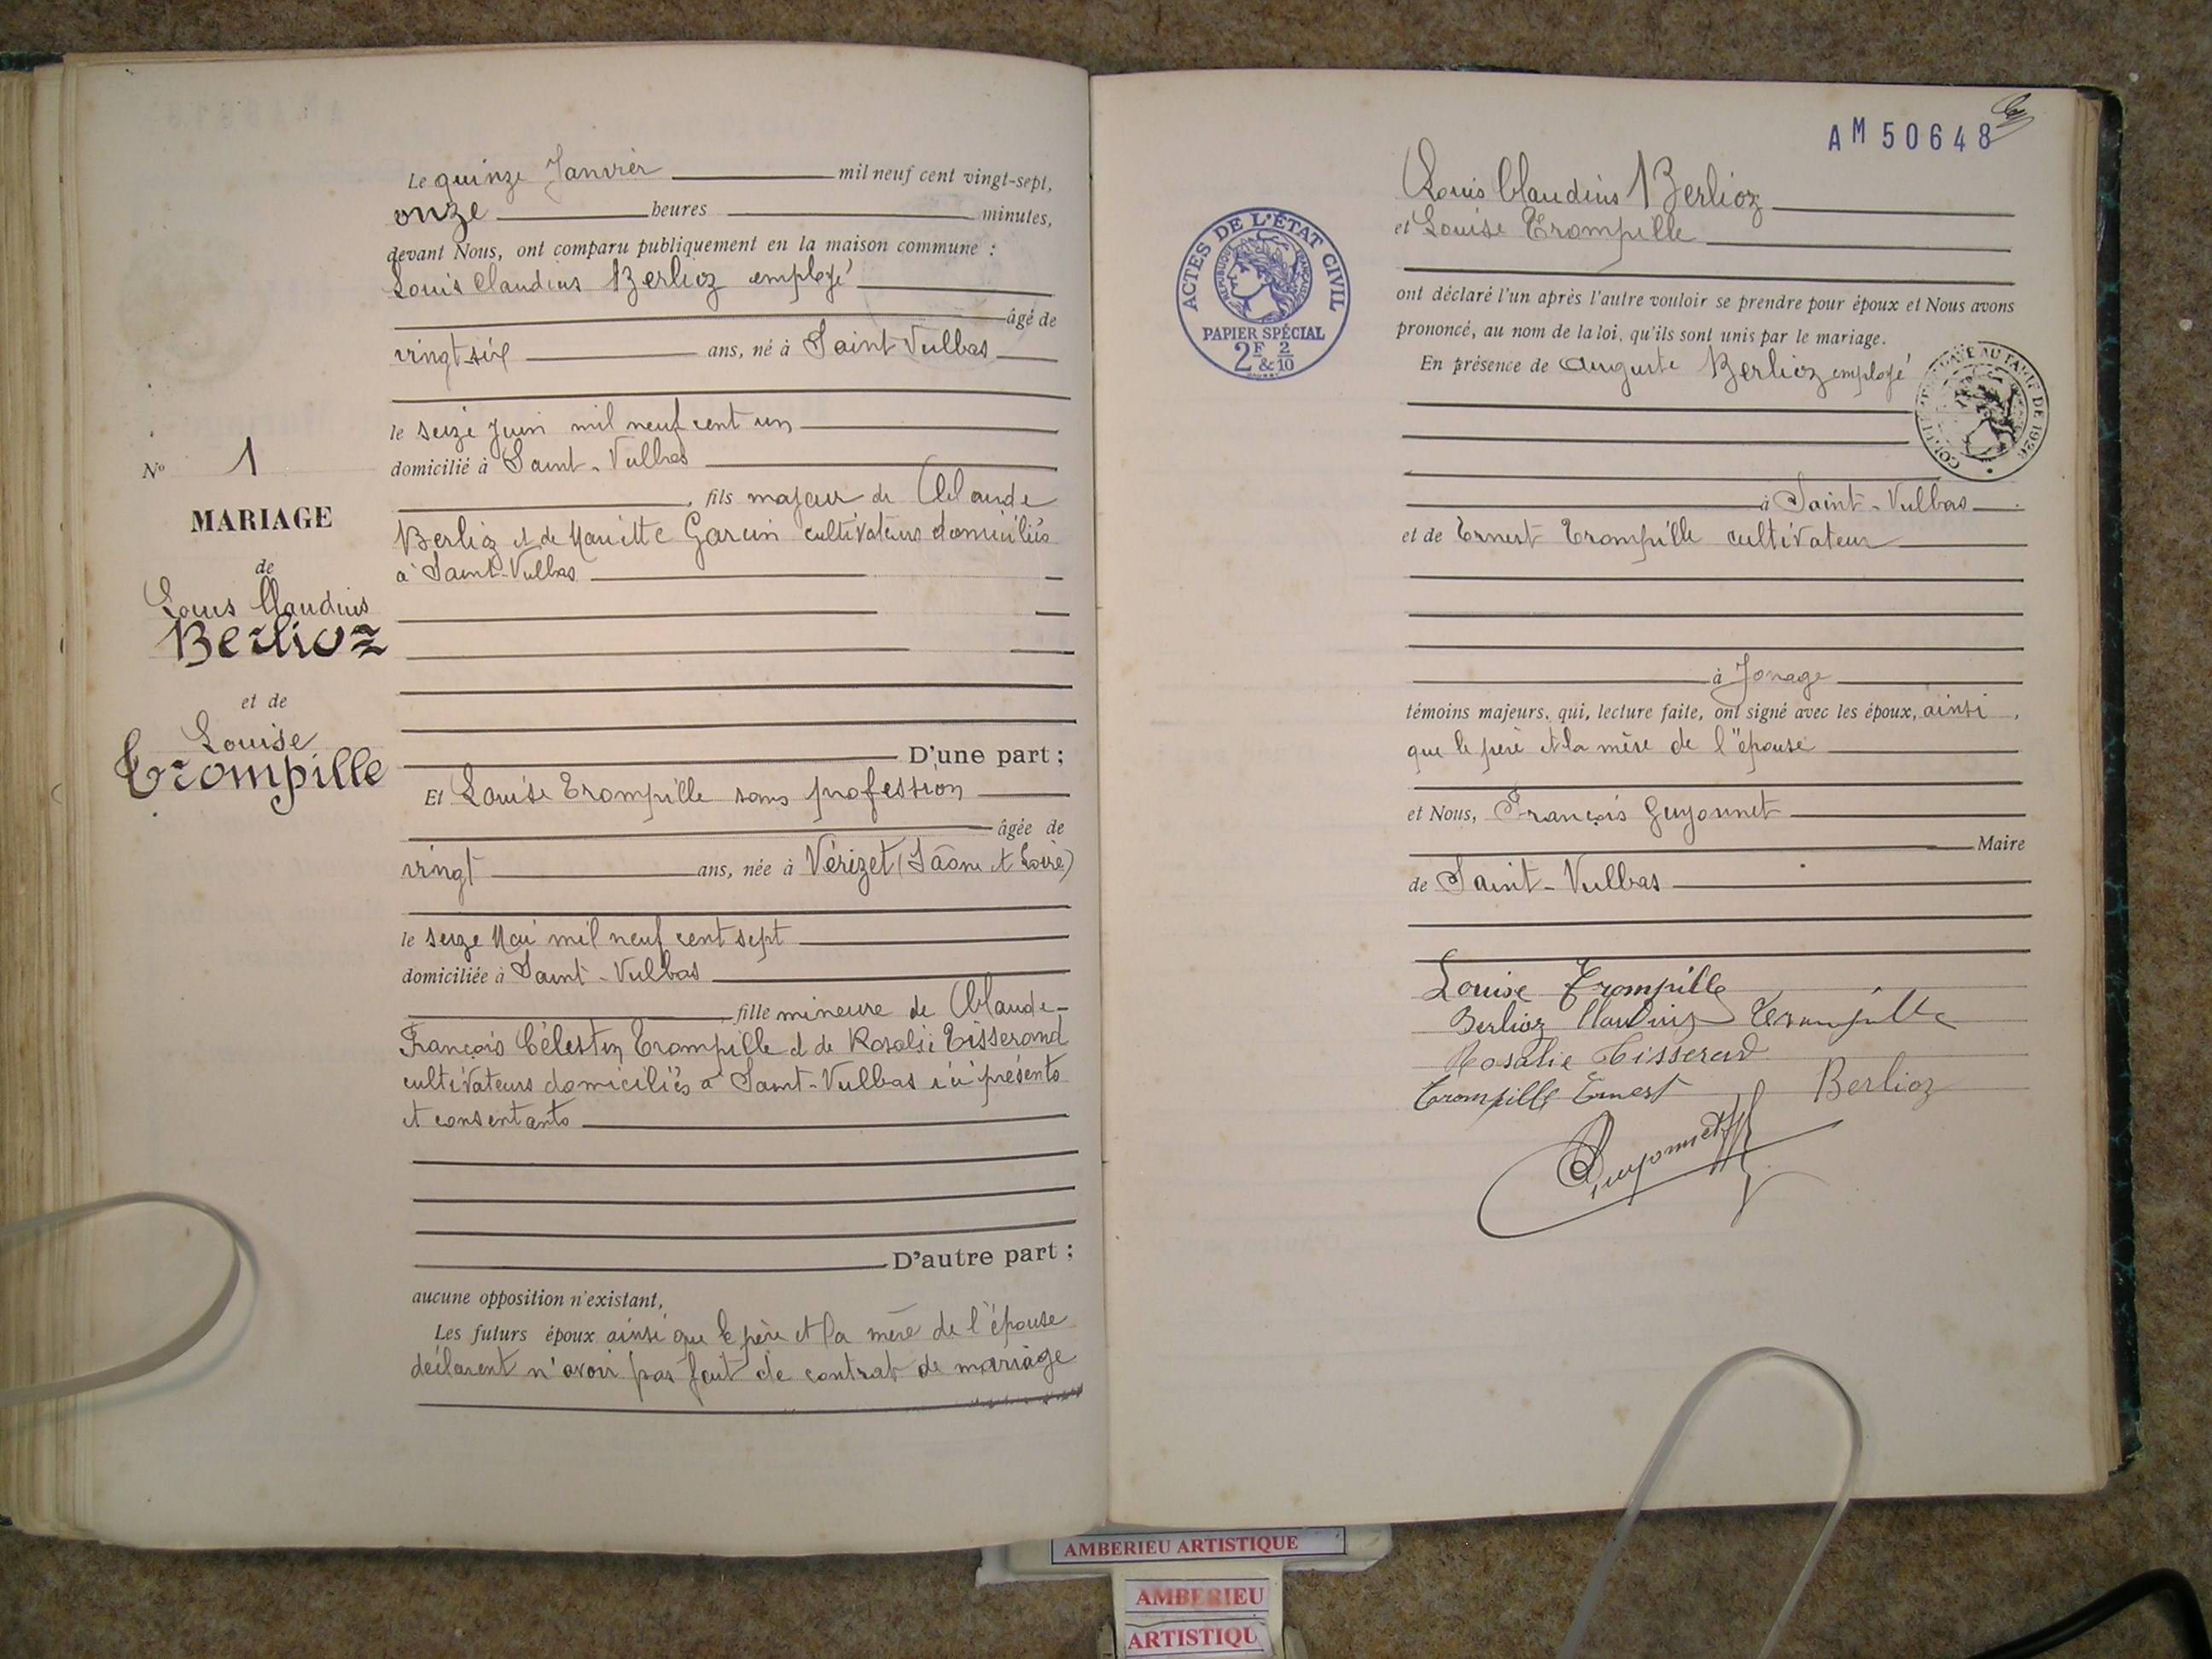 Le quinze Janvier mil neuf cent vingt-sept,
onze heures minutes,
devant Nous, ont comparu publiquement en la maison commune :
Louis Claudius Berlioz employé
âgé de
vingt-six ans, né à Saint Vulbas
le seize Juin mil neuf cent un
domicilié à Saint-Vulbas
fils majeur de Claude
Berlioz et de Mariette Garcin cultivateurs domiciliés
à Saint-Vulbas
D'une part ;
Et Louise Trompille sans profession
âgée de
vingt ans, née à Vérizet (Saône et Loire)
le seize Mai mil neuf cent sept
domiciliée à Saint-Vulbas
fille mineure de Claude-
François Célestin Trompille et de Rosalie Tisserand
cultivateurs domiciliés à Saint-Vulbas ici présents
et consentants
D'autre part ;
aucune opposition n'existant,
Les futurs époux ainsi que le père et la mère de l'épouse
déclarent n'avoir pas fait de contrat de mariage
No 1
MARIAGE
de
Louis Claudius
Berlioz
et de
Louise
Trompille
AM 50648
Louis Claudius Berlioz
et Louise Trompille
ont déclaré l'un après l'autre vouloir se prendre pour époux et Nous avons
prononcé, au nom de la loi, qu'ils sont unis par le mariage.
En présence de Auguste Berlioz employé
à Saint-Vulbas
et de Ernest Trompille cultivateur
à Jonage
témoins majeurs, qui, lecture faite, ont signé avec les époux, ainsi
que le père et la mère de l'épouse
et Nous, François Guyonnet
Maire
de Saint-Vulbas
Louise Trompille
Berlioz Claudius Trompille
Rosalie Tisserand
Trompille Ernest Berlioz
Guyonnet
ACTES DE L'ÉTAT CIVIL
RÉPUBLIQUE FRANÇAISE
PAPIER SPÉCIAL
2F & 2/10
AU TARIF DE 1926
AMBERIEU ARTISTIQUE
AMBERIEU
ARTISTIQU